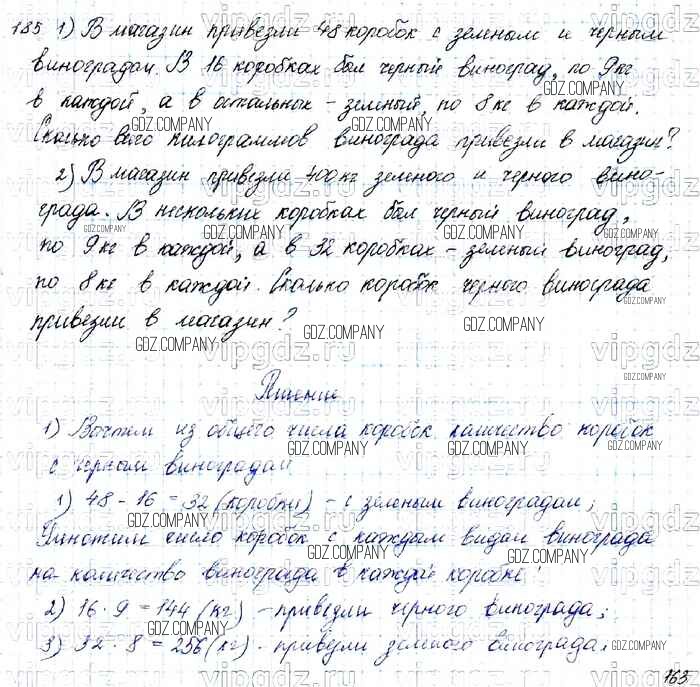 185 1) В магазин привезли 48 коробок с зеленым и черным
виноградом. В 16 коробках был черный виноград, по 9 кг
в каждой, а в остальных – зеленый, по 8 кг в каждой.
Сколько всего килограммов винограда привезли в магазин?
2) В магазин привезли 400 кг зеленого и черного вино-
града. В нескольких коробках был черный виноград,
по 9 кг в каждой, а в 32 коробках – зеленый виноград,
по 8 кг в каждой. Сколько коробок черного винограда
привезли в магазин?
Решение
1) Вычтем из общего числа коробок количество коробок
с черным виноградом
1) 48 - 16 = 32 (коробки) – с зеленым виноградом;
Умножим число коробок с каждым видом винограда
на количество винограда в каждой коробке:
2) 16 · 9 = 144 (кг) – привезли черного винограда;
3) 32 · 8 = 256 (кг) - привезли зеленого винограда.
163